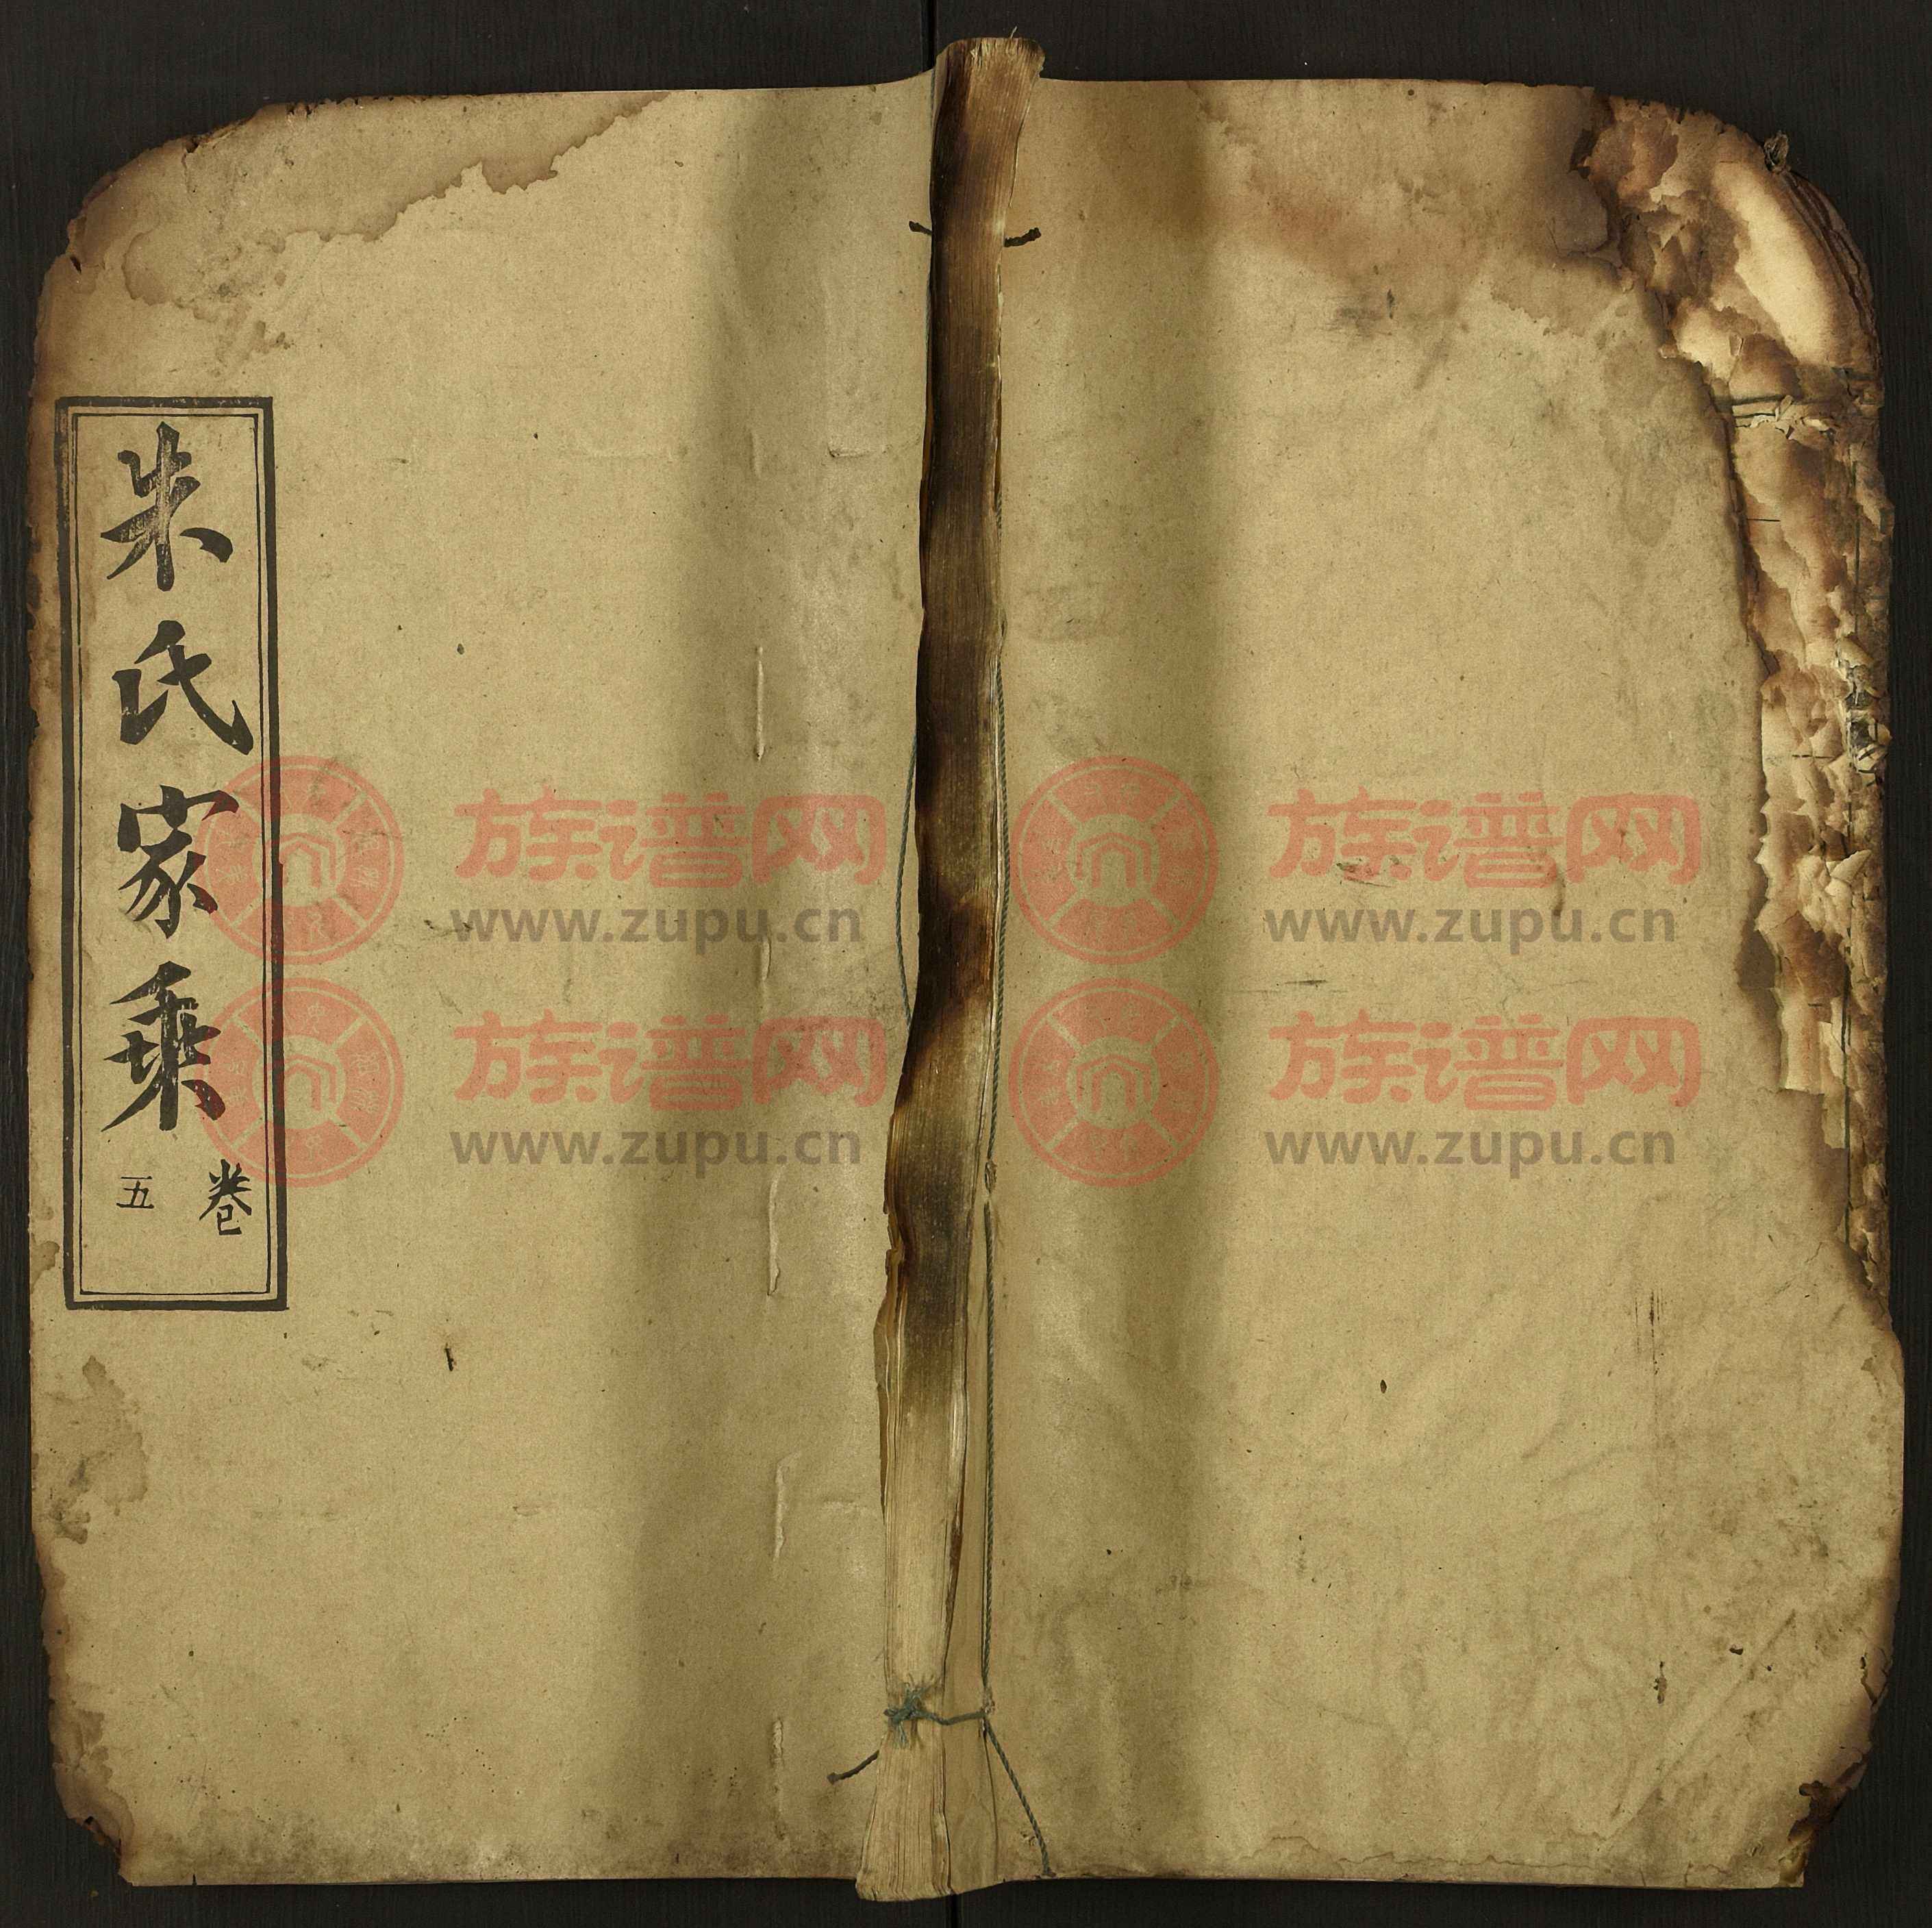 朱氏家乘
卷五
族谱网
www.zupu.cn
族谱网
www.zupu.cn
族谱网
www.zupu.cn
族谱网
www.zupu.cn